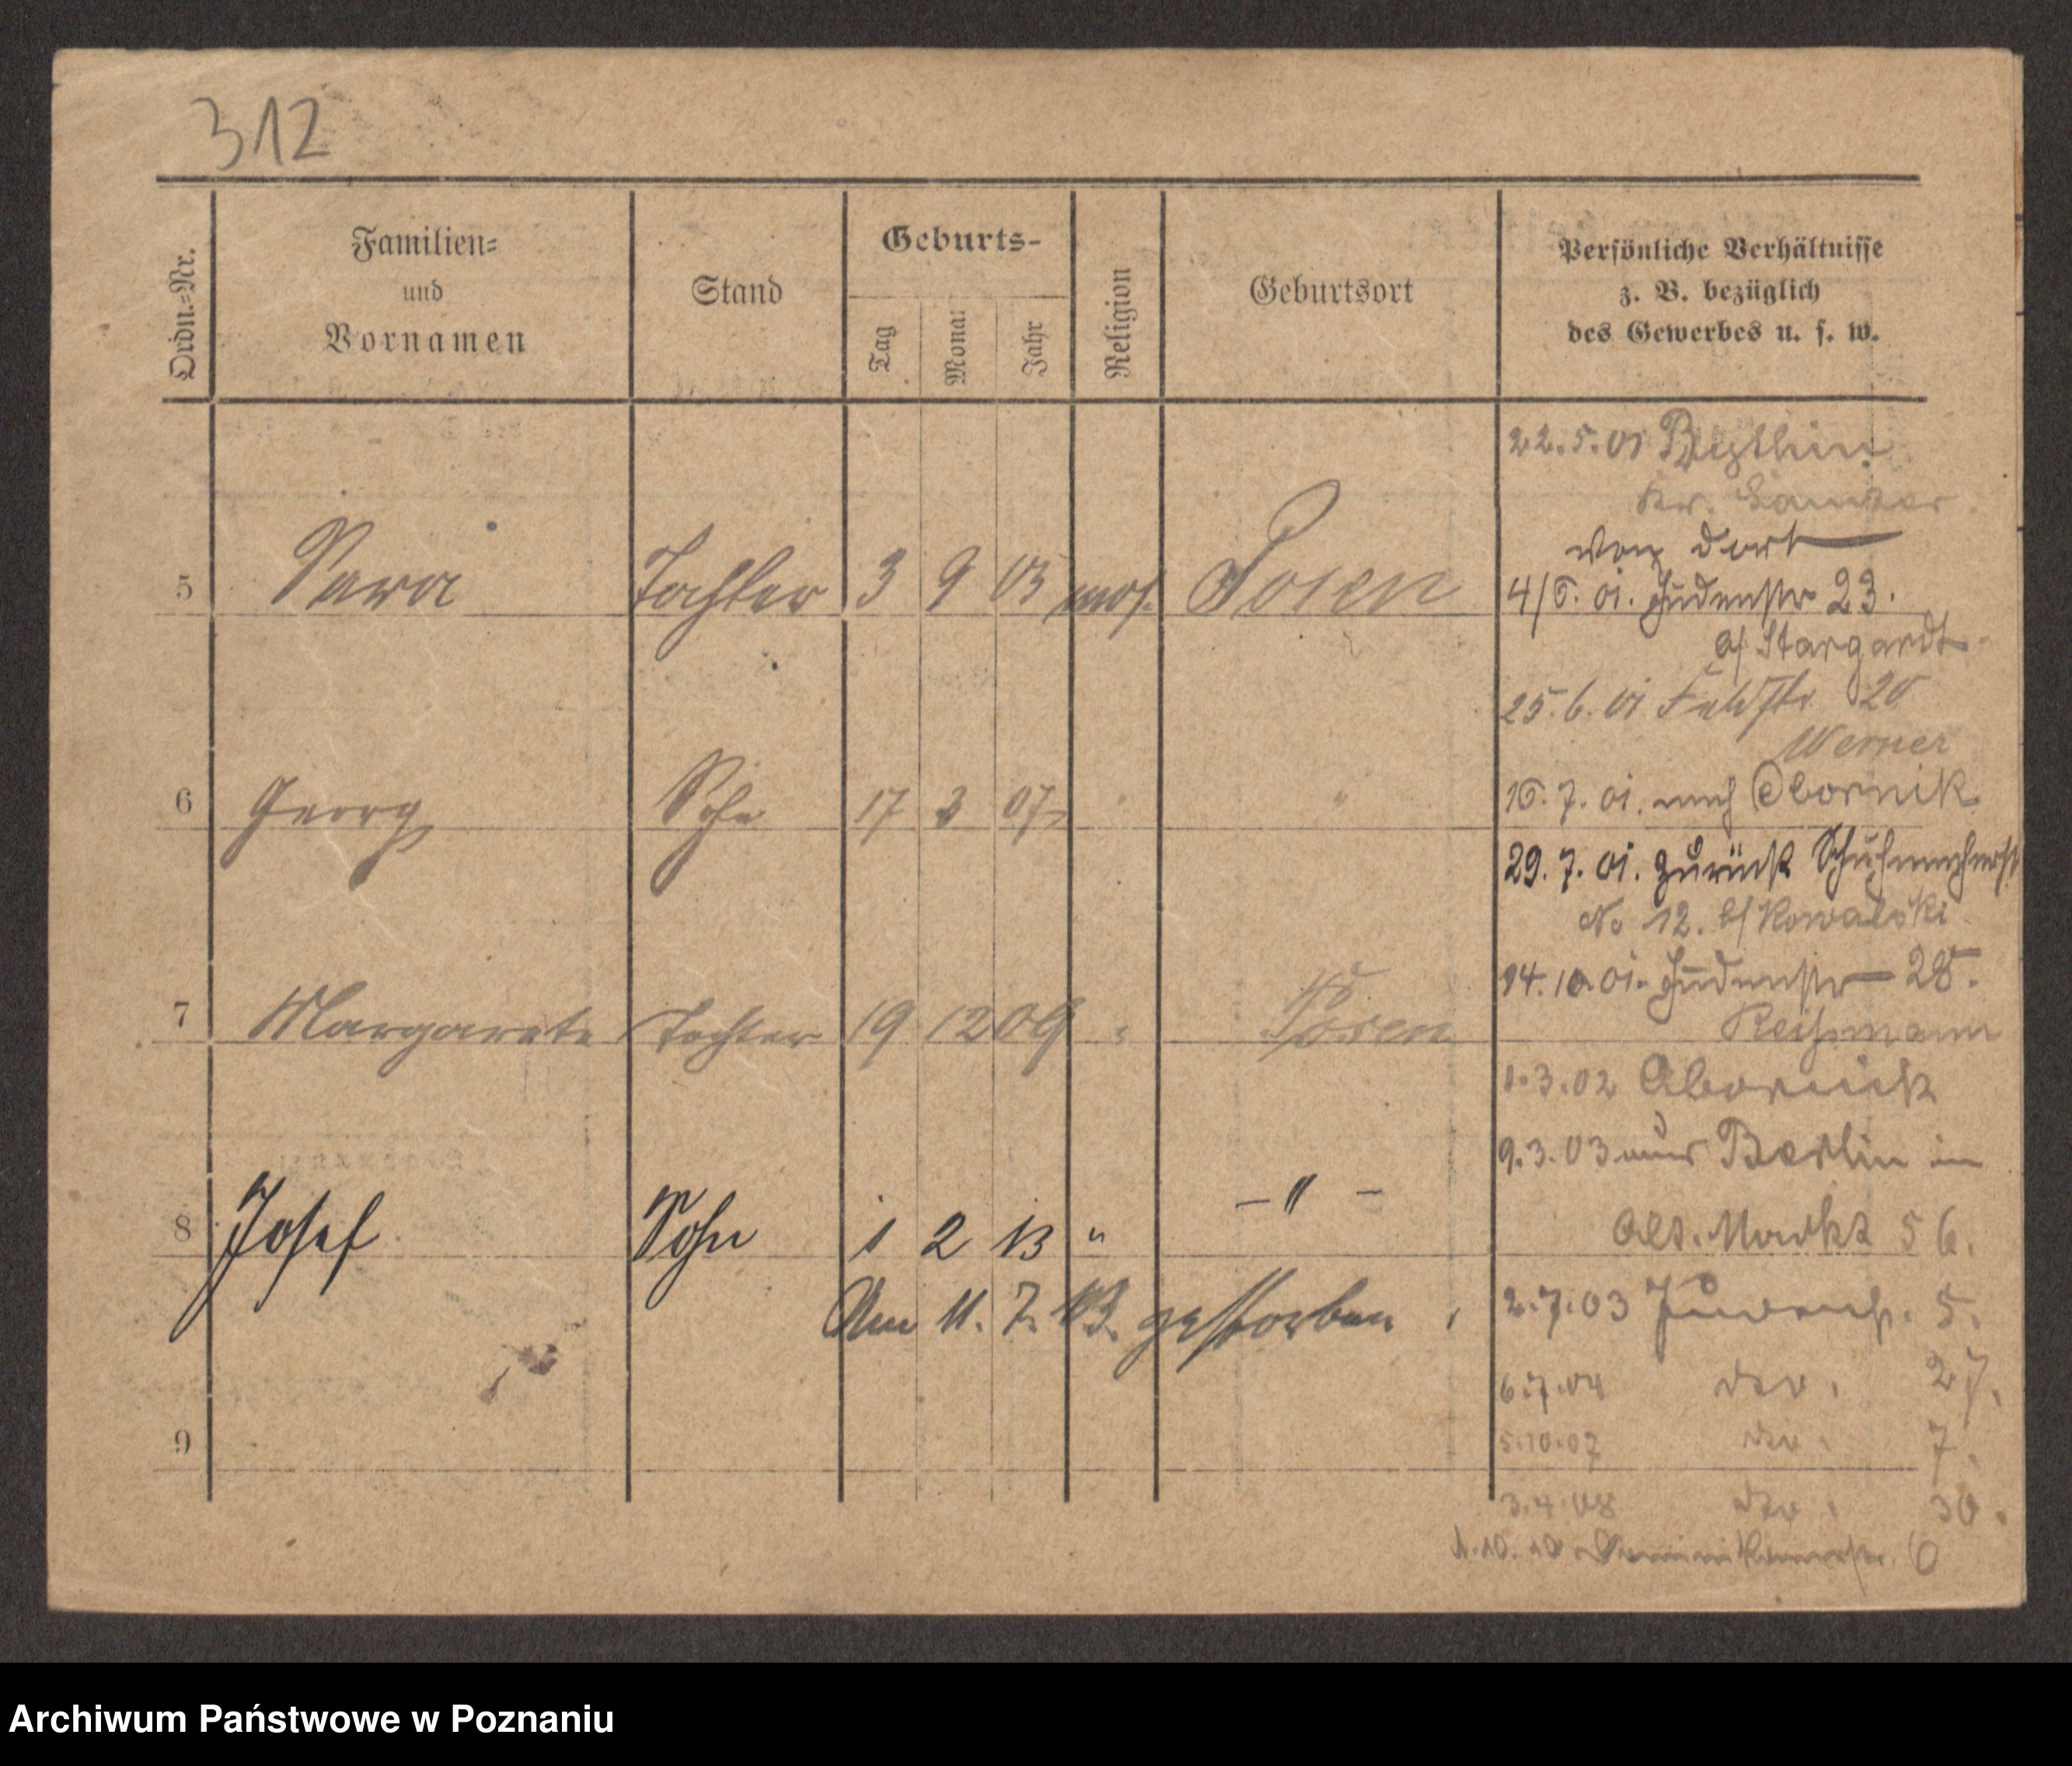 312
Ordn.-Nr.
Familien-
und
Vornamen
Stand
Geburts-
Tag
Monat
Jahr
Religion
Geburtsort
Persönliche Verhältnisse
z. B. bezüglich
des Gewerbes u. s. w.
5 Sara Tochter 3 9 05 mos. Posen
6 Georg Sohn 17 3 07 " "
7 Margarete Tochter 19 12 09 " Posen
8 Josef Sohn 1 2 13 " - " -
Am 11. 7. 13. gestorben.
9
22.5.01
Kr. Samter
von dort
4/6. 01. Judenstr 23.
b/ Stargardt
25.6.01 Feldstr 20
Werner
16. 7. 01. nach Obornik
29. 7. 01. zurück Schuhmacherst
No 12. b/ Kowalski
14. 10. 01. Judenstr 28.
Reißmann
1.3.02 Obornick
9.3.03 aus Berlin in
Alt. Markt 56.
2.7.03 Judenst. 5.
6.7.04 dto. 27.
5.10.07 dto. 7.
3.4.08 dto. 30.
1.10.10 Dominikanerstr. 6
Archiwum Państwowe w Poznaniu